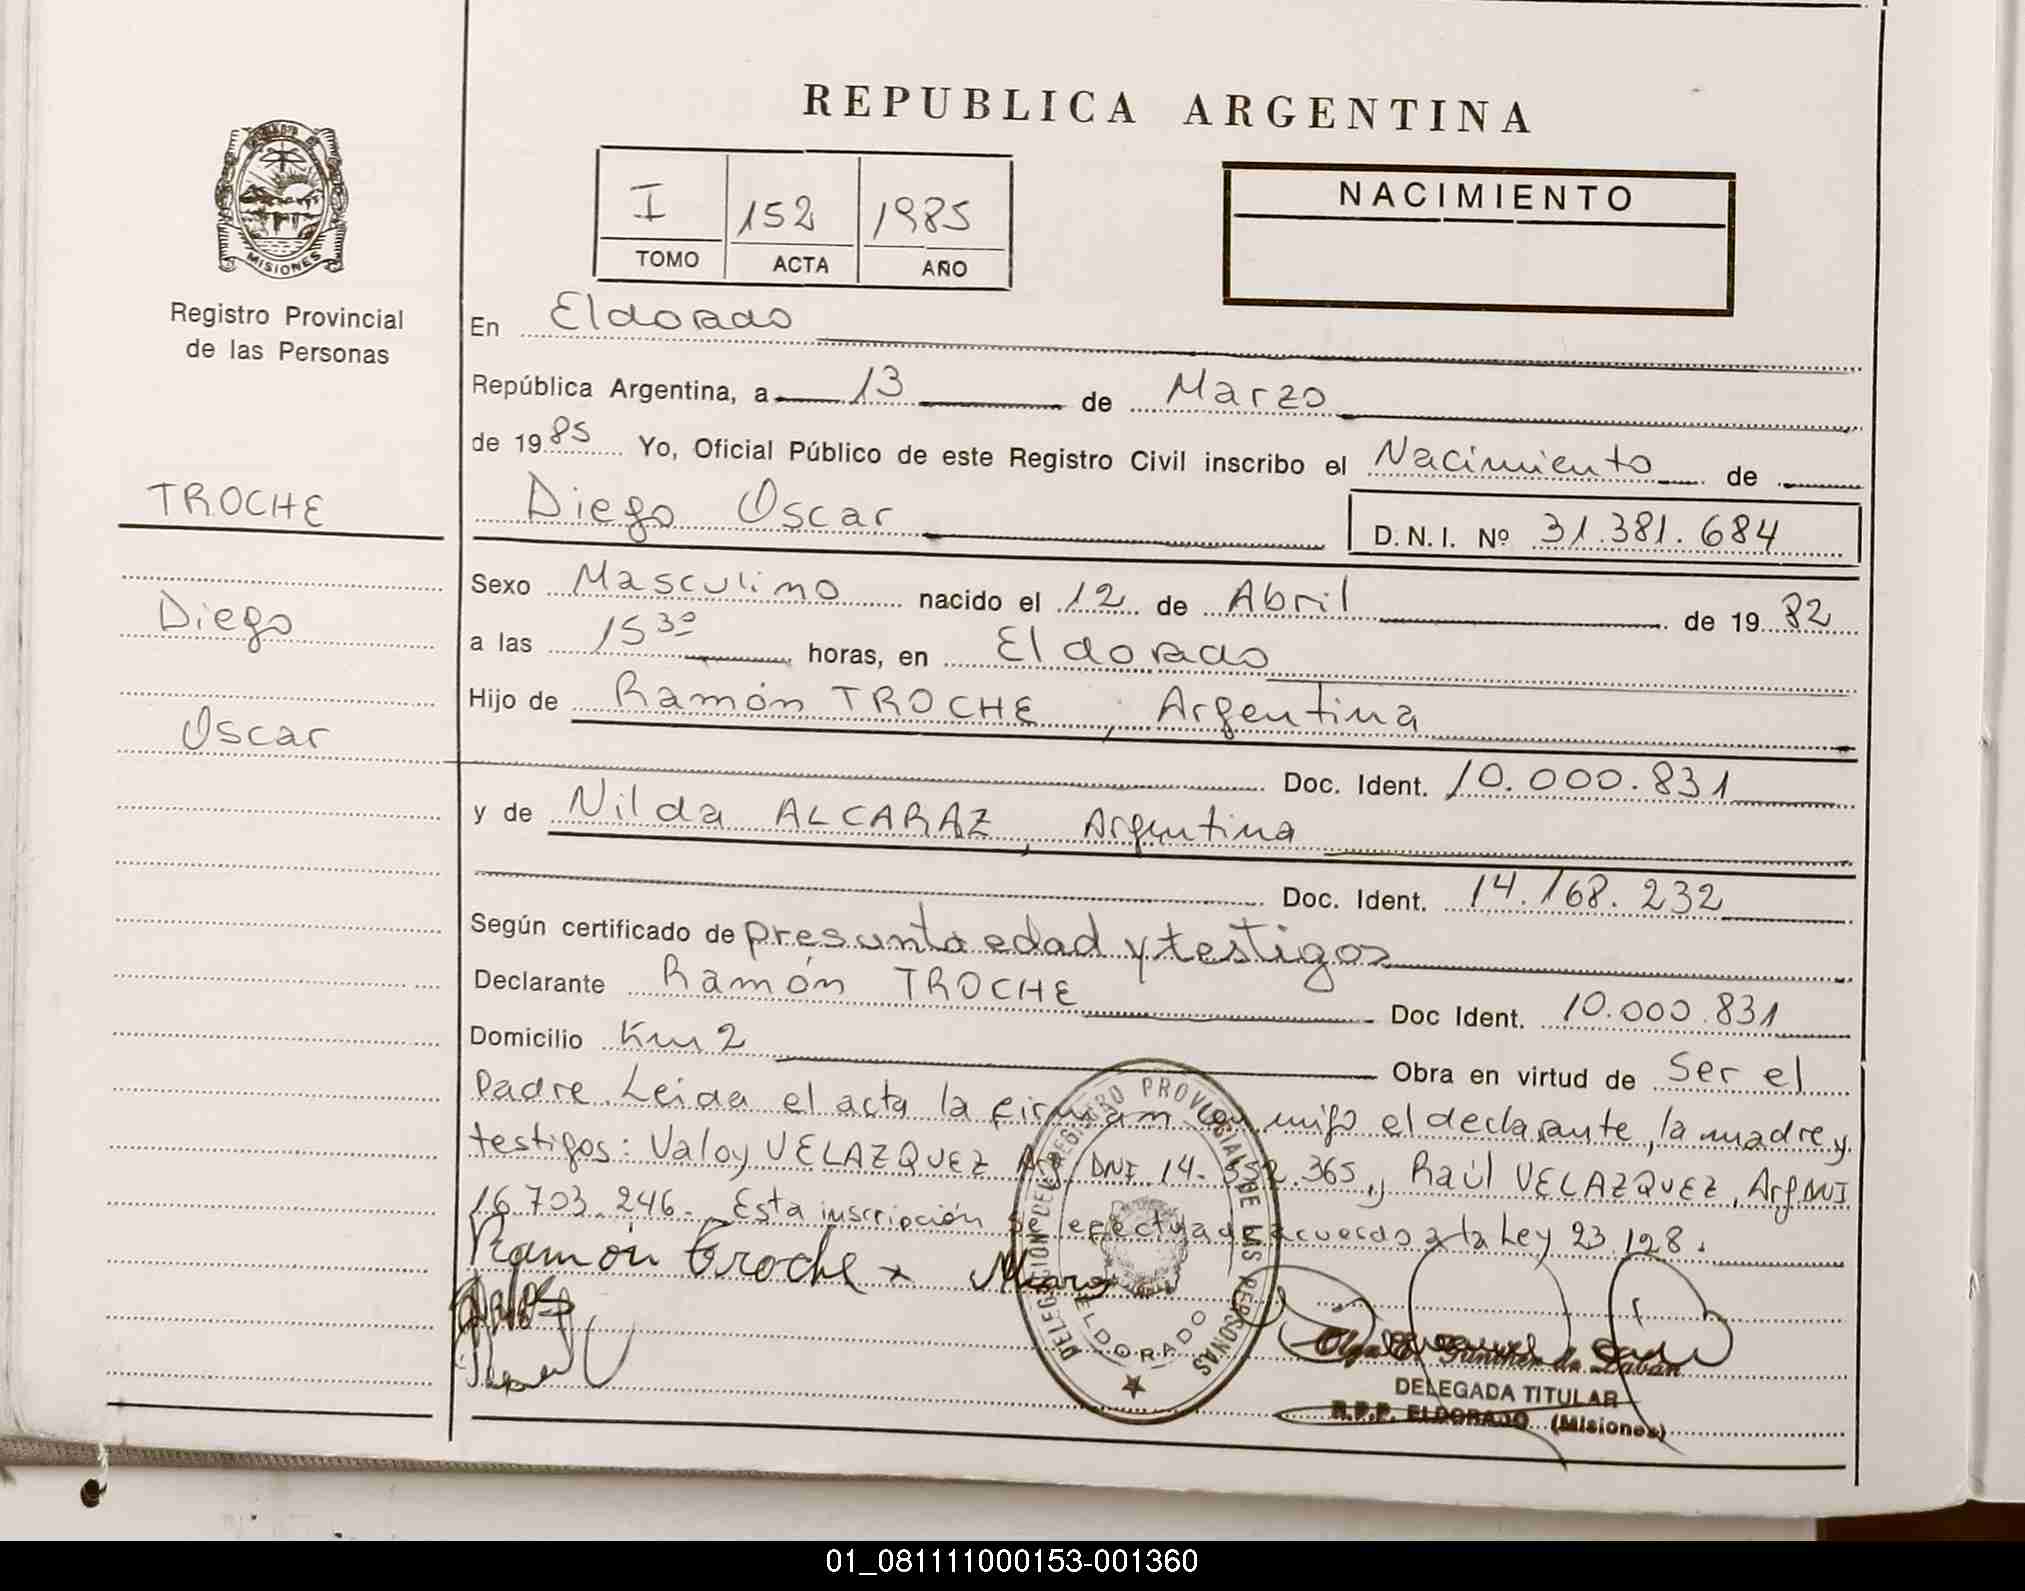 REPUBLICA ARGENTINA
MISIONES
Registro Provincial
de las Personas
I 152 1985
TOMO ACTA AÑO
NACIMIENTO
En Eldorado
República Argentina, a 13 de Marzo
de 1985 Yo, Oficial Público de este Registro Civil inscribo el Nacimiento de
TROCHE
Diego Oscar D.N.I. Nº 31.381.684
Sexo Masculino nacido el 12 de Abril de 1982
Diego
a las 15 30 horas, en Eldorado
Hijo de Ramón TROCHE, Argentina
Oscar
Doc. Ident. 10.000.831
y de Nilda ALCARAZ, Argentina
Doc. Ident. 14.168.232
Según certificado de presunta edad y testigos
Declarante Ramón TROCHE Doc Ident. 10.000.831
Domicilio Km 2 Obra en virtud de Ser el
Padre. Leida el acta la firman con migo el declarante, la madre y
testigos: Valoy VELAZQUEZ Arg DNI 14. 552.365, Raúl VELAZQUEZ, Arg DNI
16.703.246. Esta inscripción se efectua de acuerdo a la Ley 23.128.
Ramón Troche x
DELEGACION DEL REGISTRO PROVINCIAL DE LAS PERSONAS
ELDORADO
DELEGADA TITULAR
R.P.P. ELDORADO (Misiones)
01_081111000153-001360